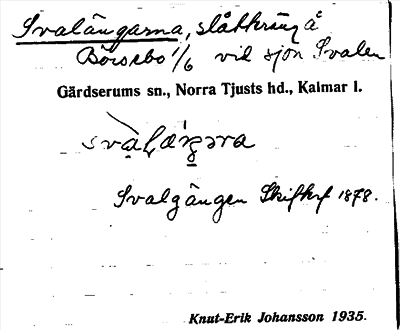 Svalängarna, slåttkring å
Börsebo 1/6 vid sjön Svalen
Gärdserums sn., Norra Tjusts hd., Kalmar l.
Svalgängen Skifthf 1878.
Knut-Erik Johansson 1935.